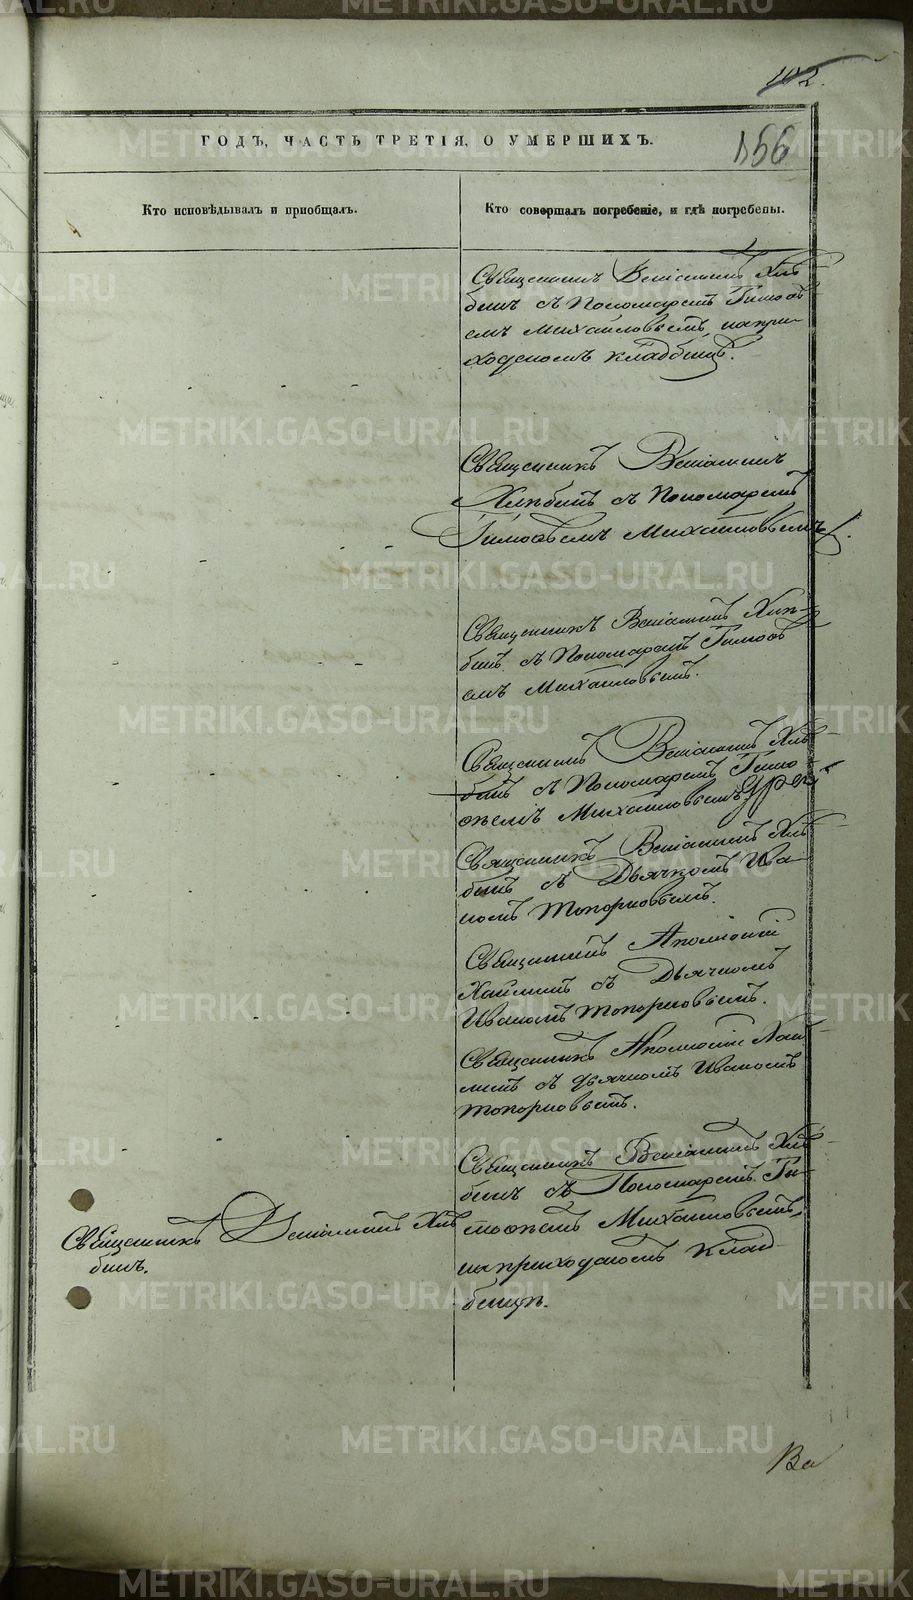 102.
ГОДЪ, ЧАСТЬ ТРЕТІЯ, О УМЕРШИХЪ.
156
Кто исповѣдывалъ и пріобщалъ.
Кто совершалъ погребеніе, и гдѣ погребены.
Священникъ Веніаминъ Хлѣ-
бинъ съ Пономаремъ Тимоѳѣ
емъ Михайловымъ, на при-
ходскомъ кладбищѣ.
Священникъ Веніаминъ
Хлѣбинъ съ Пономаремъ
Тимоѳѣемъ Михайловымъ.
Священникъ Веніаминъ Хлѣ-
бинъ съ Пономаремъ Тимоѳѣ
емъ Михайловымъ.
Священникъ Веніаминъ Хлѣ-
бинъ съ Пономаремъ Тимо
ѳеемъ Михайловымъ
Священникъ Веніаминъ Хлѣ
бинъ съ Дьячкомъ Ива-
номъ Топорковымъ.
Священникъ Аполлоній
съ Дьячкомъ
Иваномъ Топорковымъ.
Священникъ Аполлоній
съ дьячкомъ Иваномъ
Топорковымъ.
Священникъ Веніаминъ Хлѣ
бинъ съ Пономаремъ Ти-
моѳеемъ Михайловымъ,
на приходскомъ клад-
бищѣ.
Священникъ Веніаминъ Хлѣ
бинъ.
Ва
METRIKI.GASO-URAL.RU